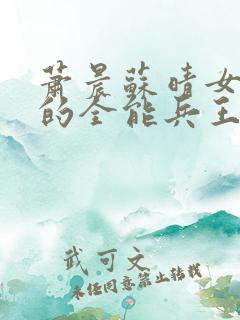 蕭晨蘇晴女
的全能兵王
武可文
未经同意禁止转载